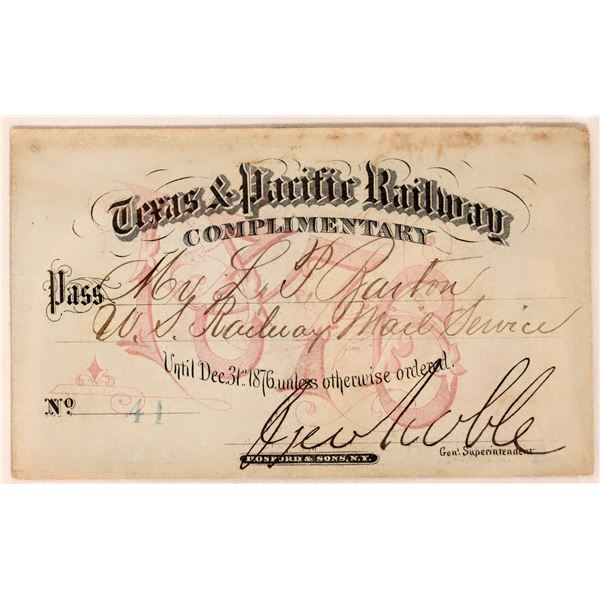 Texas & Pacific Railway
COMPLIMENTARY.
Pass My L. P. Barton
U. S. Railway Mail Service
1876
Until Dec. 31st 1876 unless otherwise ordered.
No 41
Geo Noble
Genl. Superintendent
HOSFORD & SONS, N.Y.